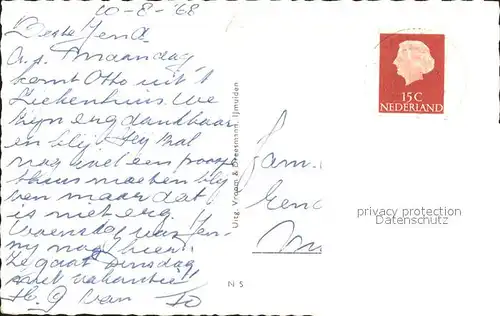 20-8-'68
Beste
a.s. Maandag
komt Otto uit 't
Ziekenhuis. We
zijn erg dankbaar
en blij. Hij zal
nog wel een poosje
thuis moeten blij
ven maar dat
is niet erg.
Woensdag was Jen-
ny nog hier.
Ze gaat dinsdag
met vakantie!!
Uitg. Vroom & Dreesmann, IJmuiden
N 5
15 C
NEDERLAND
Fam.
privacy protection
Datenschutz